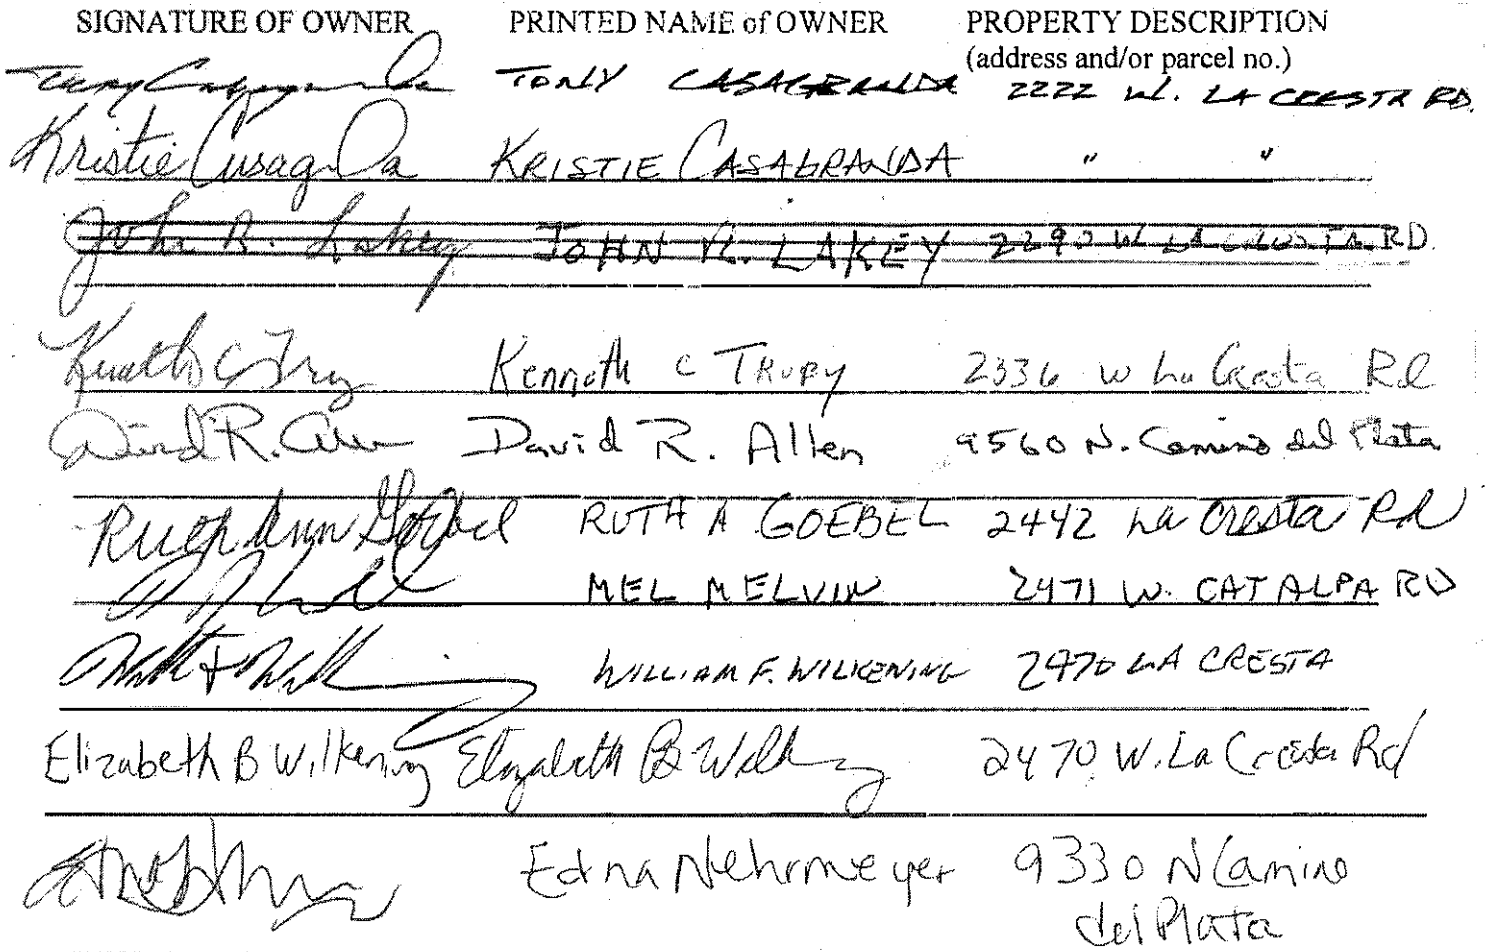 SIGNATURE OF OWNER PRINTED NAME of OWNER PROPERTY DESCRIPTION
(address and/or parcel no.)
Tony Casagranda TONY CASAGRANDA 2222 W. LA CRESTA RD.
Kristie Casagranda KRISTIE CASAGRANDA " "
John R. Lakey JOHN R. LAKEY 2290 W LA CRESTA RD.
Kenneth C Trupy Kenneth C TRUPY 2336 W La Cresta Rd
David R. Allen David R. Allen 9560 N. Camino del Plata
Ruth Ann Goebel RUTH A GOEBEL 2442 La Cresta Rd
MEL MELVIN 2471 W. CATALPA RD
WILLIAM F. WILKENING 2470 LA CRESTA
Elizabeth B Wilkening Elizabeth B Wilkening 2470 W. La Cresta Rd
Edna Nehrmeyer 9330 N Camino
del Plata